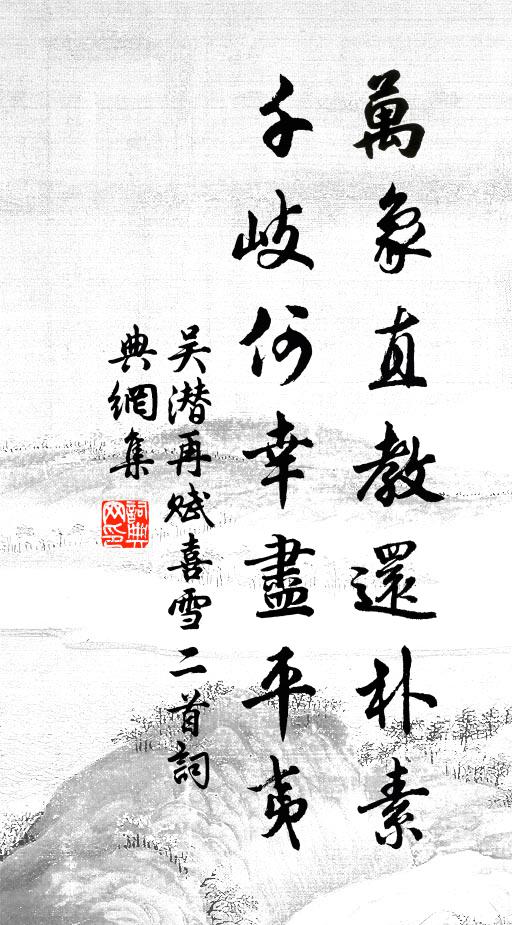 萬象直教還朴素
千岐何幸盡平夷
吴潜再赋喜雪二首詞
典網集
詞典
网印